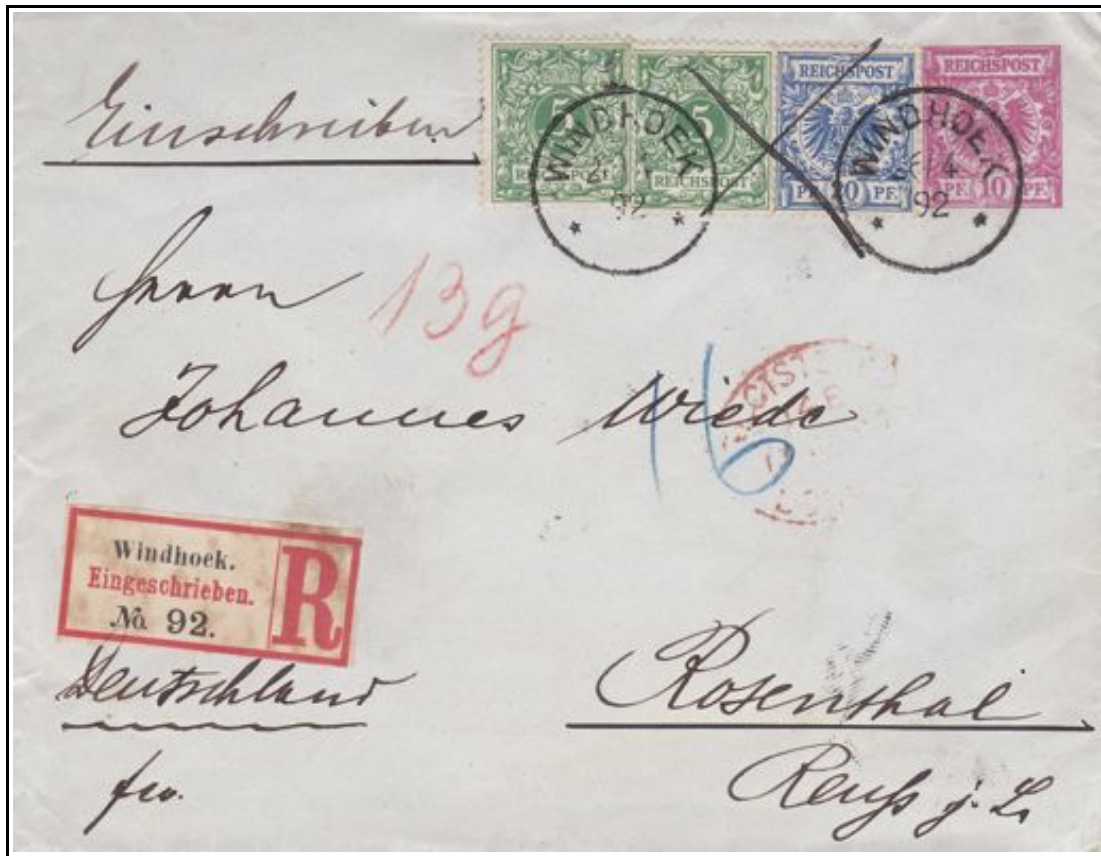 Einschreiben
5 5 REICHSPOST REICHSPOST
REICHSPOST
PF. 20 PF.
PF. 10 PF.
REICHSPOST
WINDHOEK
92
WINDHOEK
4
92
Herrn
13g
Johannes Wiede
16
Windhoek.
Eingeschrieben.
No. 92.
R
Deutschland
fro.
Rosenthal
Reuß j. L.